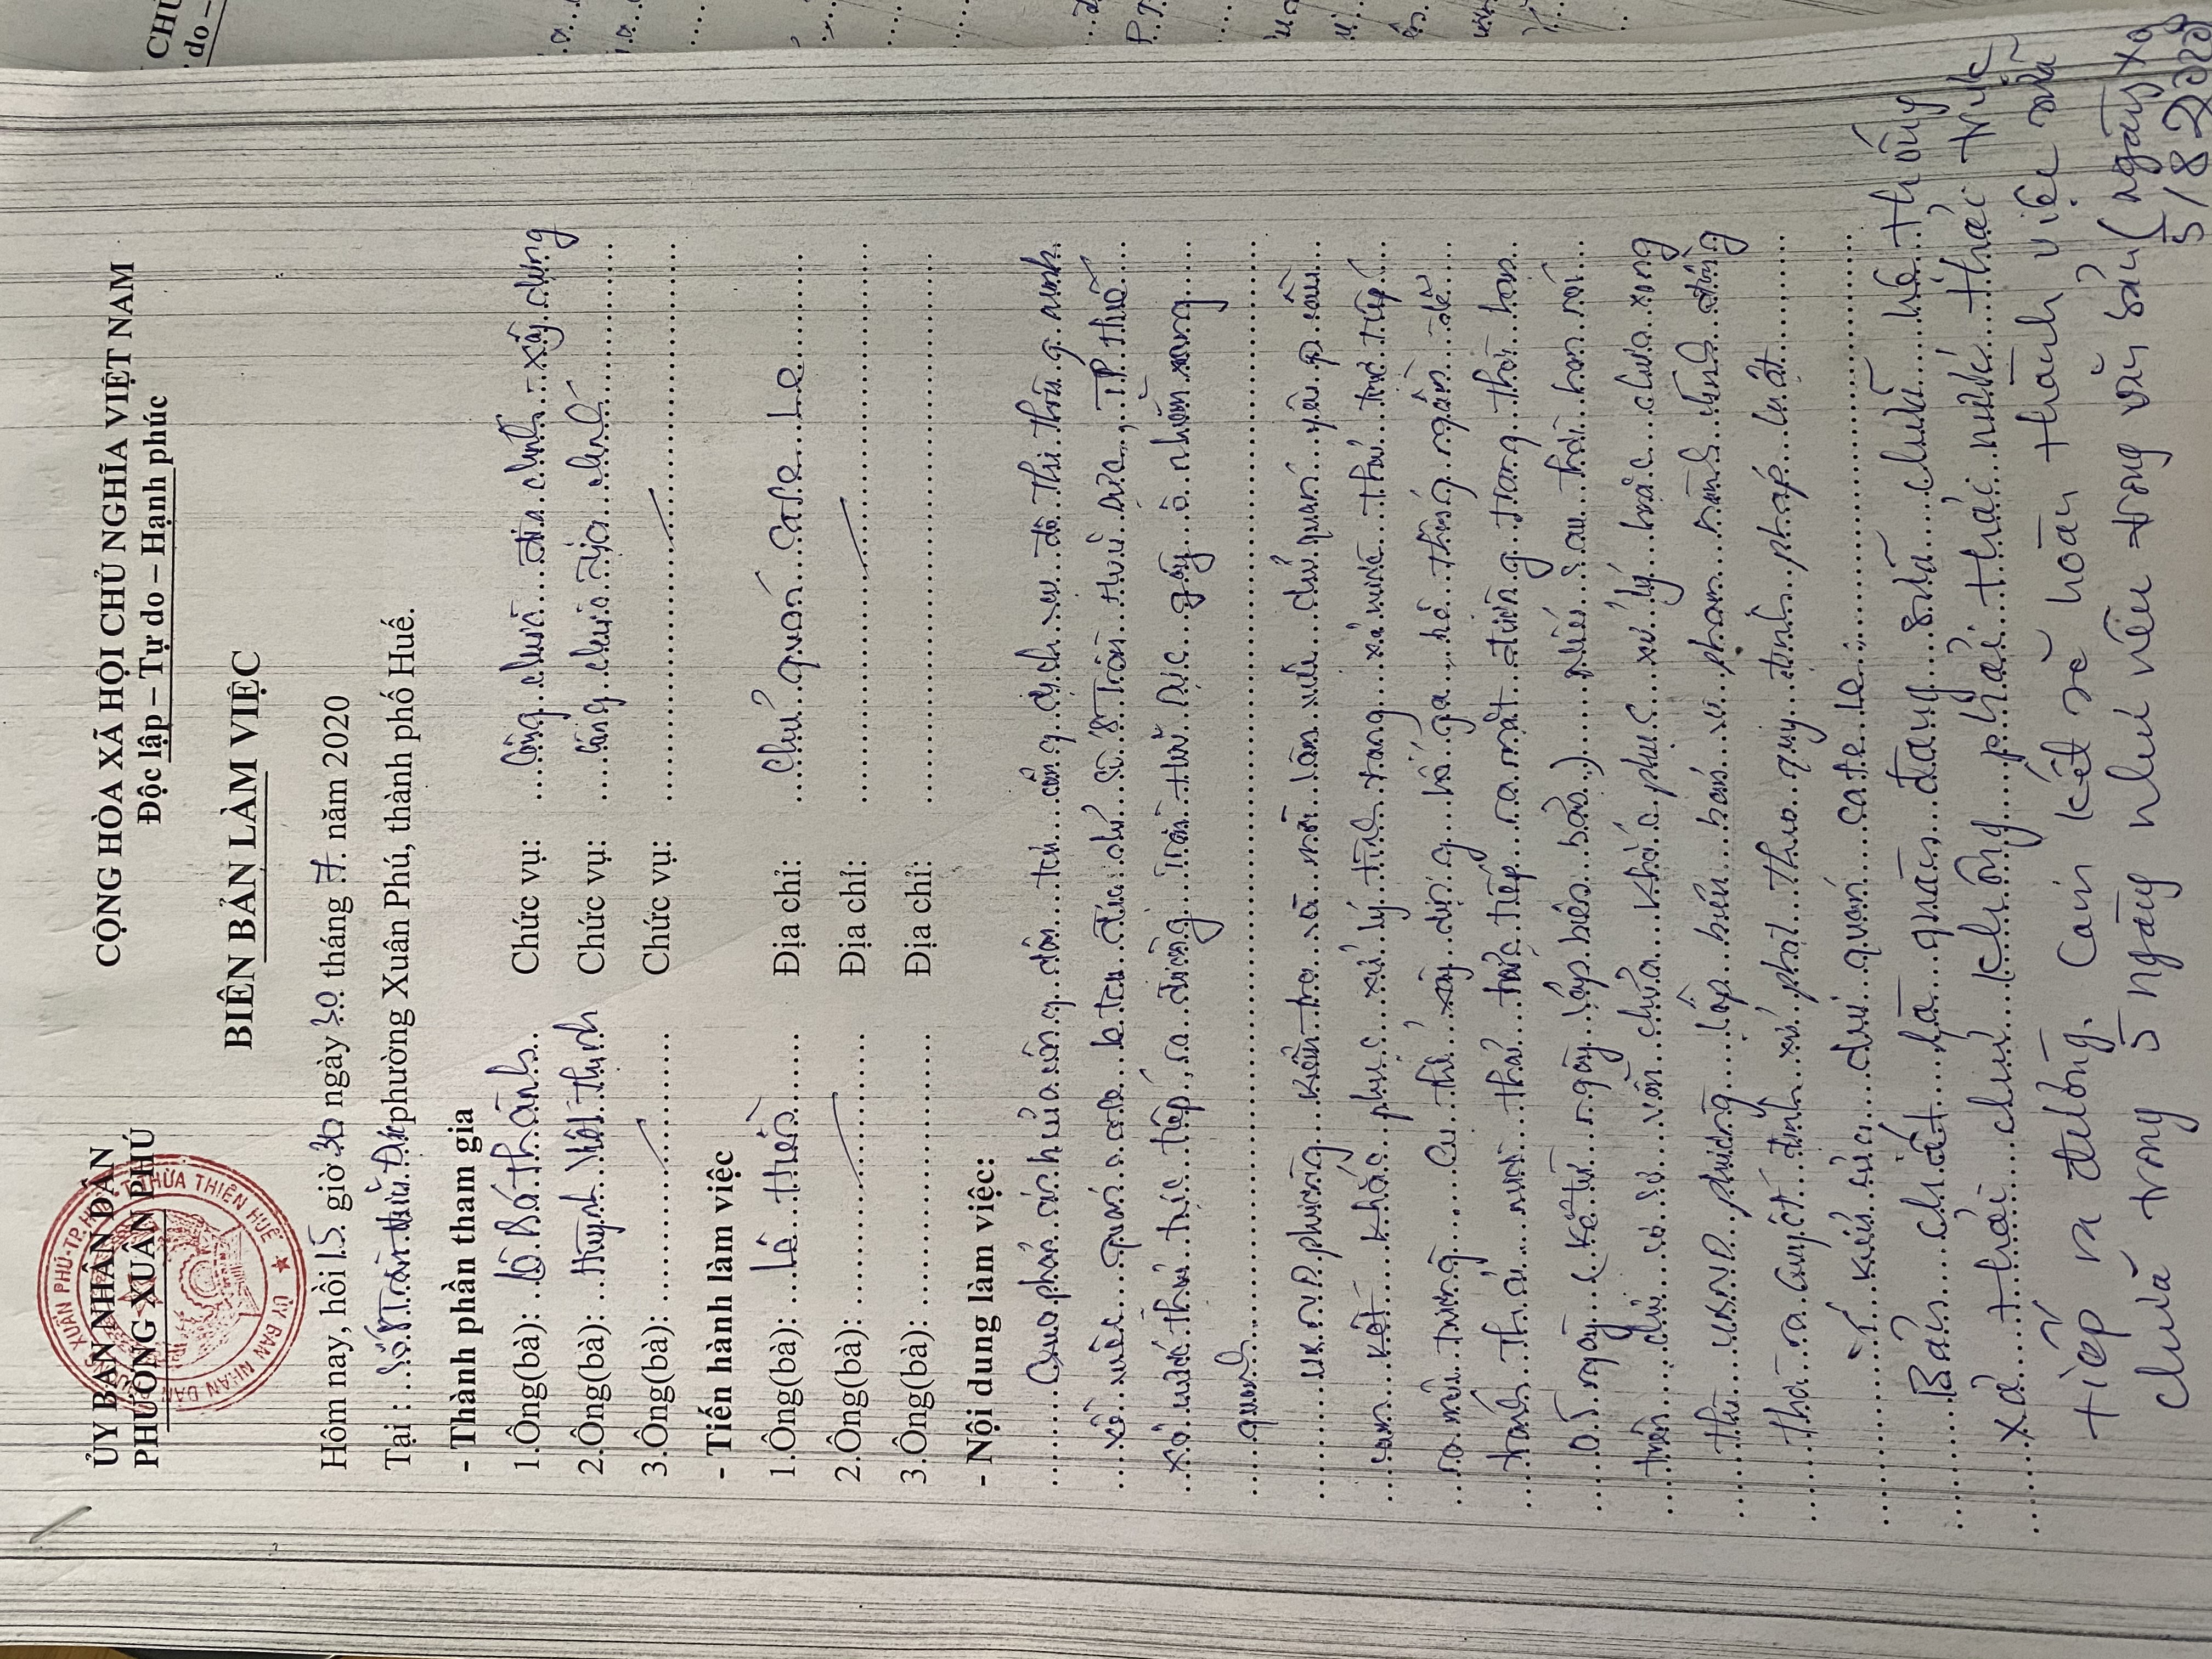 ỦY BAN NHÂN DÂN
PHƯỜNG XUÂN PHÚ
CỘNG HÒA XÃ HỘI CHỦ NGHĨA VIỆT NAM
Độc lập – Tự do – Hạnh phúc
BIÊN BẢN LÀM VIỆC
Hôm nay, hồi 15 giờ 30 ngày 30 tháng 7 năm 2020
Tại : Số 8 Trần Hữu Dực phường Xuân Phú, thành phố Huế.
- Thành phần tham gia
1.Ông(bà): Lê Bá Thành Chức vụ: Công chức địa chính - xây dựng
2.Ông(bà): Huỳnh Viết Thịnh Chức vụ: Công chức địa chính
3.Ông(bà): Chức vụ:
- Tiến hành làm việc
1.Ông(bà): Lê Hiền Địa chỉ: Chủ quán cafe Le
2.Ông(bà): Địa chỉ:
3.Ông(bà): Địa chỉ:
- Nội dung làm việc:
Qua phản ánh của công dân trên cổng dịch vụ đô thị thông minh
về việc quán cafe Le tại địa chỉ số 8 Trần Hữu Dực, TP Huế
xả nước thải trực tiếp ra đường Trần Hữu Dực gây ô nhiễm xung
quanh
UBND phường kiểm tra và mời làm việc chủ quán yêu cầu
cam kết khắc phục xử lý tình trạng xả nước thải trực tiếp
ra môi trường. Cụ thể xây dựng hố ga, hệ thống ngầm để
tránh thải nước thải trực tiếp ra mặt đường trong thời hạn
05 ngày (kể từ ngày lập biên bản) Nếu sau thời hạn nói
trên chủ cơ sở vẫn chưa khắc phục xử lý hoặc chưa xong
thì UBND phường lập biên bản vi phạm hành chính đồng
thời ra quyết định xử phạt theo quy định pháp luật
Ý kiến của chủ quán cafe Le:
Bản chất là quán đang sửa chữa hệ thống
xả thải chứ không phải thải nước thải trực
tiếp ra đường. Cam kết sẽ hoàn thành việc sửa
chữa trong 5 ngày như nêu trong văn bản (ngày
5/8 2020
CHỦ
do –
PHƯỜNG XUÂN PHÚ-TP.HUẾ-T.THỪA THIÊN HUẾ
ỦY BAN NHÂN DÂN